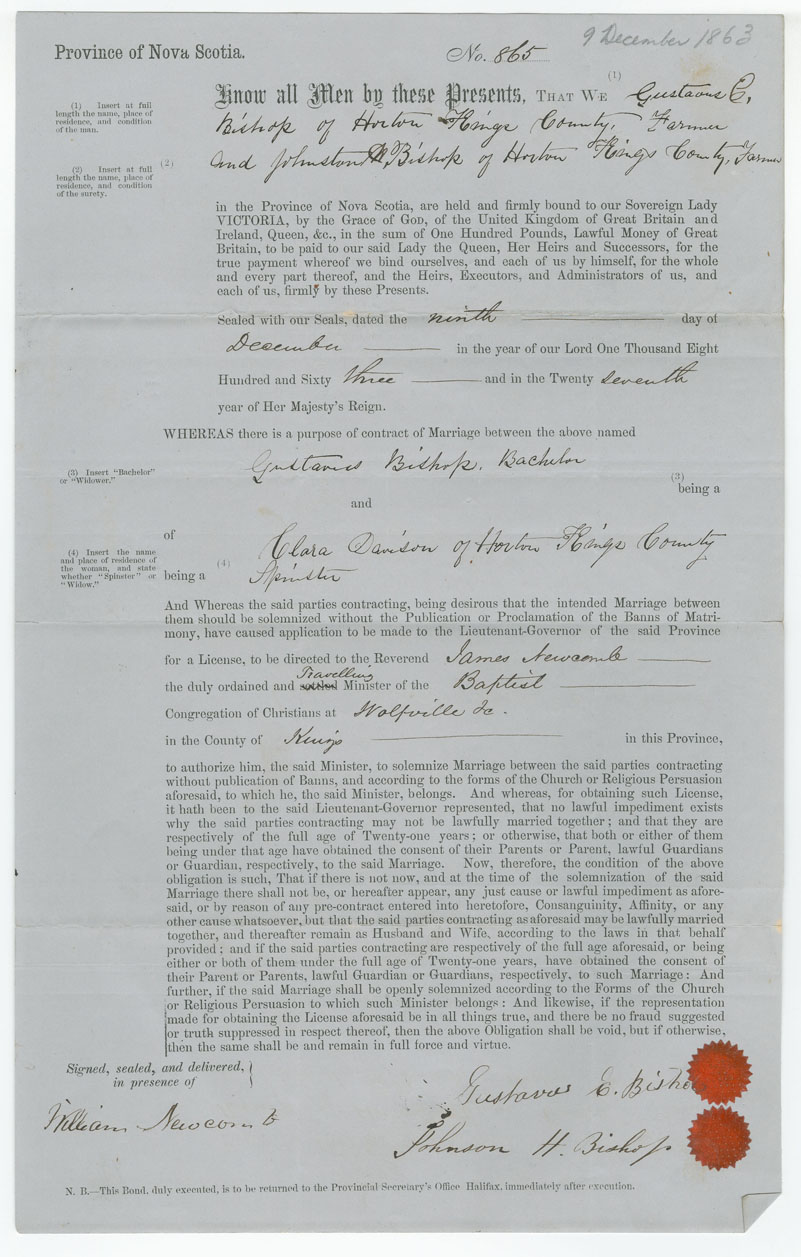 9 December 1863
Province of Nova Scotia.
No. 865
(1)
Know all Men by these Presents, THAT WE Gustavus E.
(1) Insert at full
length the name, place of
residence, and condition
of the man.
Bishop of Horton Kings County, Farmer
(2)
and Johnston H Bishop of Horton Kings County, Farmer
(2) Insert at full
length the name, place of
residence, and condition
of the surety.
in the Province of Nova Scotia, are held and firmly bound to our Sovereign Lady
VICTORIA, by the Grace of GOD, of the United Kingdom of Great Britain and
Ireland, Queen, &c., in the sum of One Hundred Pounds, Lawful Money of Great
Britain, to be paid to our said Lady the Queen, Her Heirs and Successors, for the
true payment whereof we bind ourselves, and each of us by himself, for the whole
and every part thereof, and the Heirs, Executors, and Administrators of us, and
each of us, firmly by these Presents.
Sealed with our Seals, dated the ninth day of
December in the year of our Lord One Thousand Eight
Hundred and Sixty three and in the Twenty seventh
year of Her Majesty's Reign.
WHEREAS there is a purpose of contract of Marriage between the above named
Gustavus Bishop. Bachelor
(3) Insert "Bachelor"
or "Widower."
(3)
being a
and
of
Clara Davison of Horton Kings County
(4) Insert the name
and place of residence of
the woman, and state
whether "Spinster" or
"Widow."
(4)
being a Spinster
And Whereas the said parties contracting, being desirous that the intended Marriage between
them should be solemnized without the Publication or Proclamation of the Banns of Matri-
mony, have caused application to be made to the Lieutenant-Governor of the said Province
for a License, to be directed to the Reverend James Newcomb
Travelling
the duly ordained and settled Minister of the Baptist
Congregation of Christians at Wolfville &c.
in the County of Kings in this Province,
to authorize him, the said Minister, to solemnize Marriage between the said parties contracting
without publication of Banns, and according to the forms of the Church or Religious Persuasion
aforesaid, to which he, the said Minister, belongs. And whereas, for obtaining such License,
it hath been to the said Lieutenant-Governor represented, that no lawful impediment exists
why the said parties contracting may not be lawfully married together; and that they are
respectively of the full age of Twenty-one years; or otherwise, that both or either of them
being under that age have obtained the consent of their Parents or Parent, lawful Guardians
or Guardian, respectively, to the said Marriage. Now, therefore, the condition of the above
obligation is such, That if there is not now, and at the time of the solemnization of the said
Marriage there shall not be, or hereafter appear, any just cause or lawful impediment as afore-
said, or by reason of any pre-contract entered into heretofore, Consanguinity, Affinity, or any
other cause whatsoever, but that the said parties contracting as aforesaid may be lawfully married
together, and thereafter remain as Husband and Wife, according to the laws in that behalf
provided; and if the said parties contracting are respectively of the full age aforesaid, or being
either or both of them under the full age of Twenty-one years, have obtained the consent of
their Parent or Parents, lawful Guardian or Guardians, respectively, to such Marriage: And
further, if the said Marriage shall be openly solemnized according to the Forms of the Church
or Religious Persuasion to which such Minister belongs: And likewise, if the representation
made for obtaining the License aforesaid be in all things true, and there be no fraud suggested
or truth suppressed in respect thereof, then the above Obligation shall be void, but if otherwise,
then the same shall be and remain in full force and virtue.
Signed, sealed, and delivered,
in presence of
Gustavus E. Bishop
William Newcomb
Johnson H. Bishop
N. B.—This Bond, duly executed, is to be returned to the Provincial Secretary's Office, Halifax, immediately after execution.